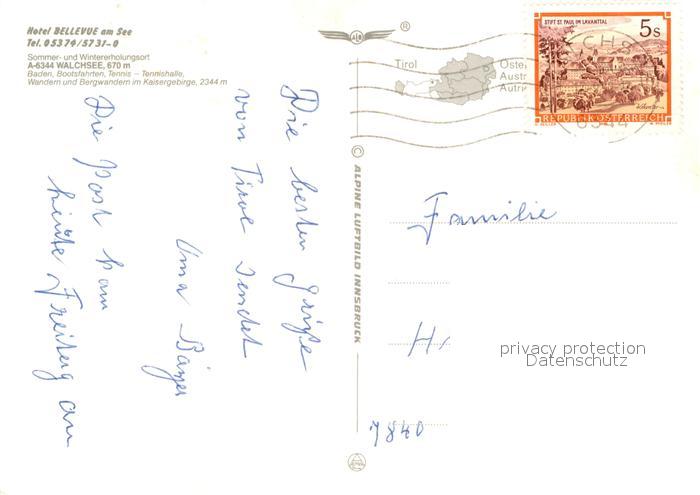 Hotel BELLEVUE am See
Tel. 05374/5731-0
Sommer- und Wintererholungsort
A-6344 WALCHSEE, 670 m
Baden, Bootsfahrten, Tennis – Tennishalle,
Wandern und Bergwandern im Kaisergebirge, 2344 m
Die besten Grüße
von Tirol sendet
Die Post kam
heute Freitag an
® 
© ALPINE LUFTBILD INNSBRUCK
Tirol
STIFT ST. PAUL IM LAVANTTAL
5s
REPUBLIK ÖSTERREICH
Familie
H
7840
privacy protection
Datenschutz